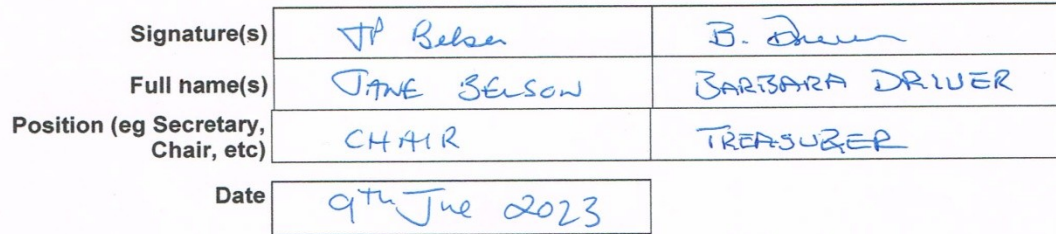 Signature(s) JP Belson B. Driver
Full name(s) JANE BELSON BARBARA DRIVER
Position (eg Secretary,
Chair, etc) CHAIR TREASURER
Date 9th Jne 2023